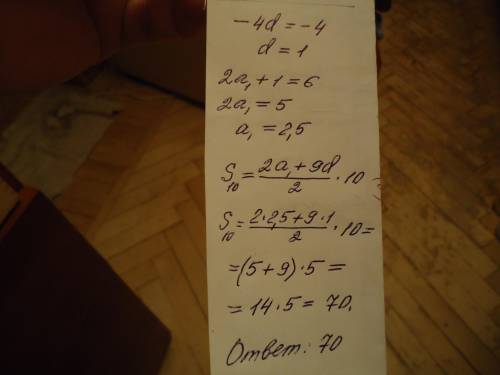 -4d = -4
d = 1
2a₁ + 1 = 6
2a₁ = 5
a₁ = 2,5
S₁₀ = (2a₁ + 9d)/2 · 10
S₁₀ = (2·2,5 + 9·1)/2 · 10 =
= (5 + 9) · 5 =
= 14 · 5 = 70.
Ответ: 70